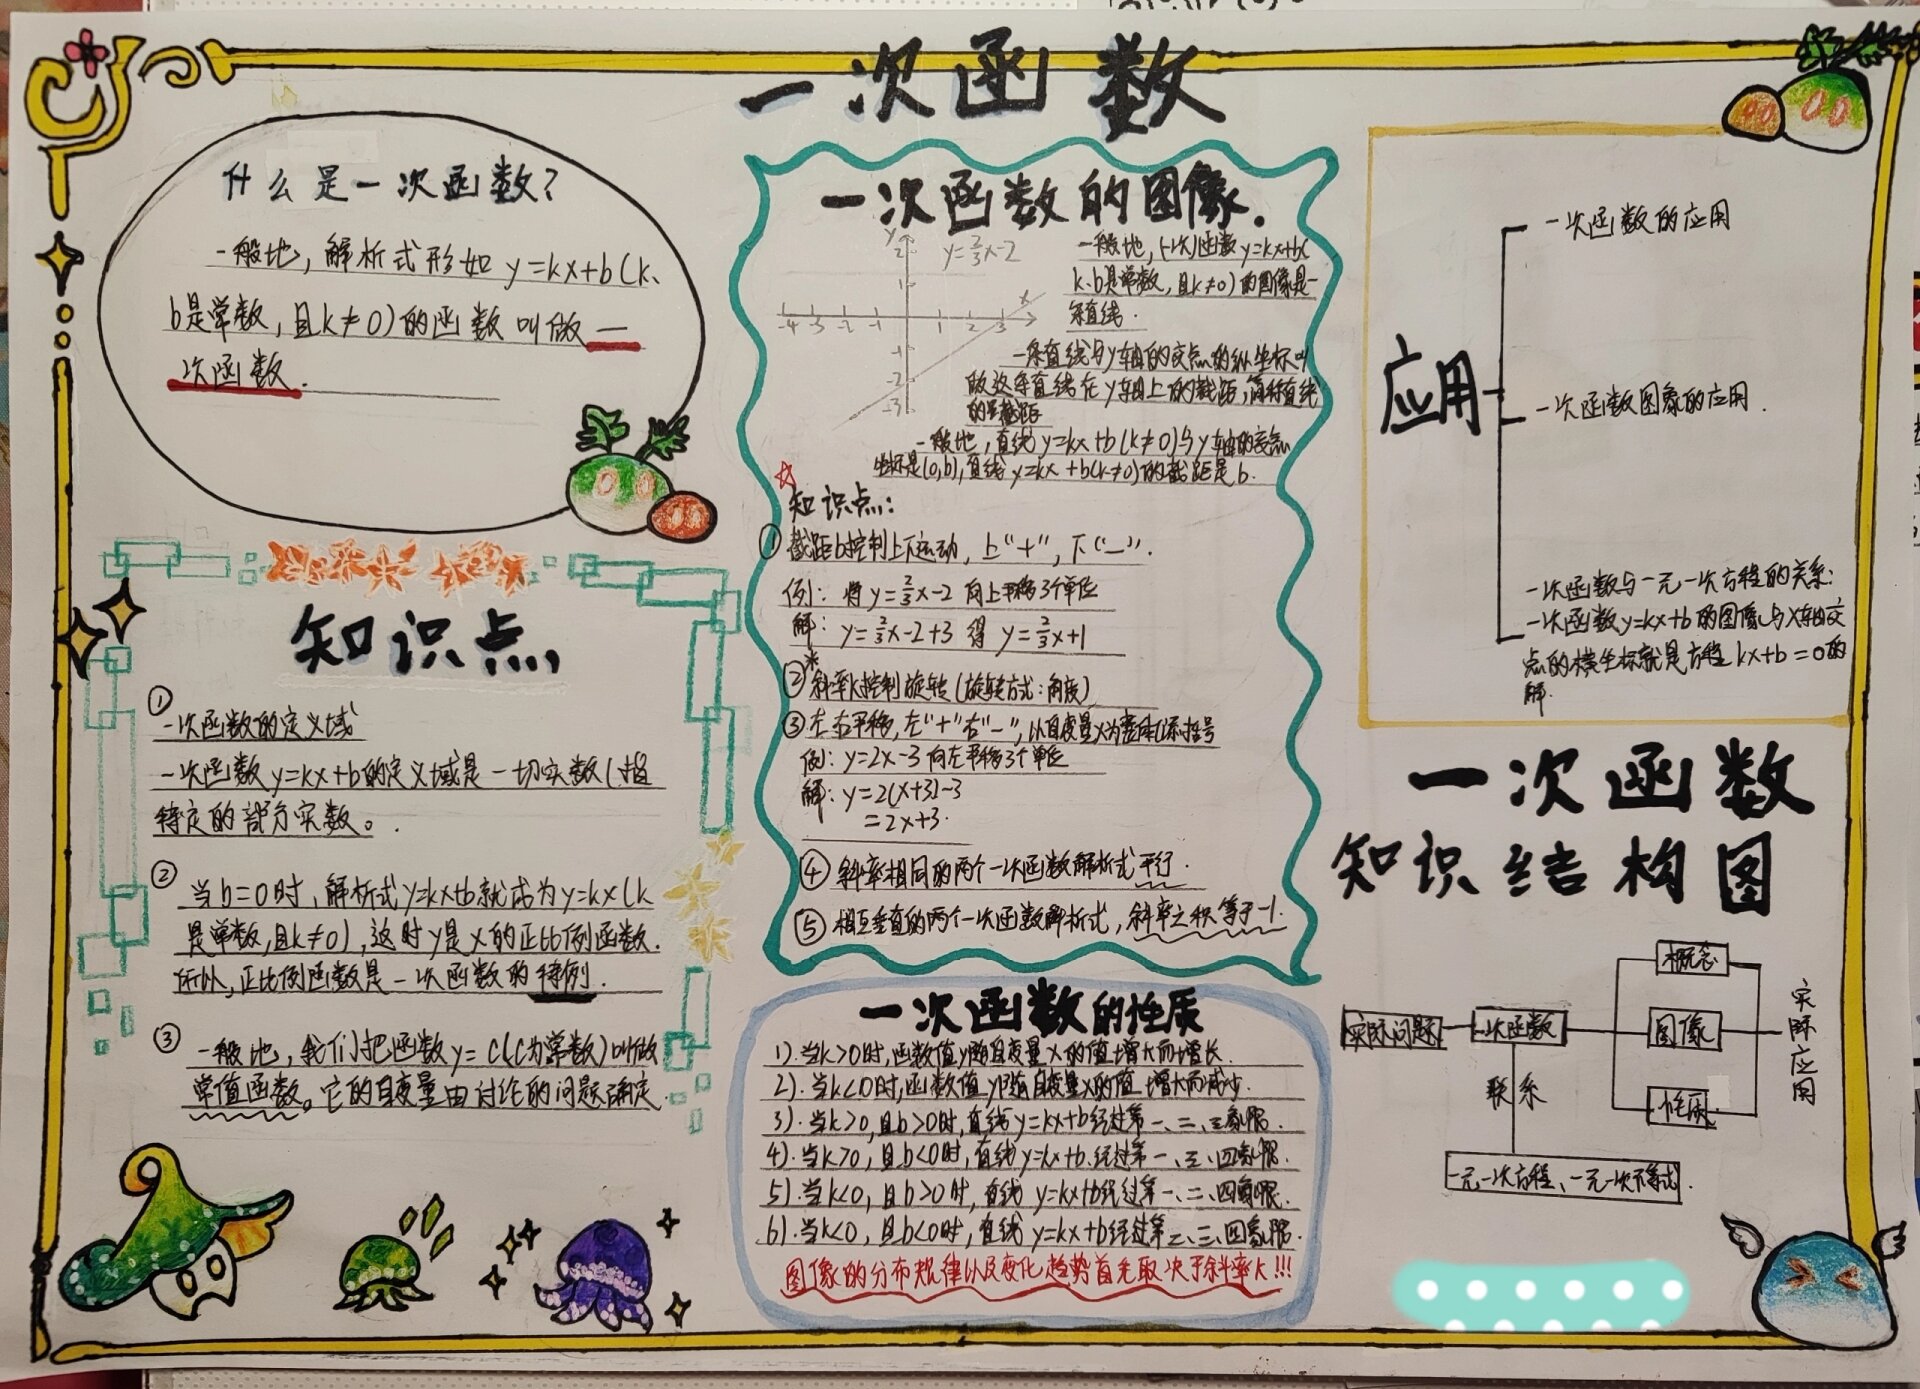 一次函数
什么是一次函数?
一般地,解析式形如y=kx+b(k、
b是常数,且k≠0)的函数叫做一
次函数.
知识点
①
一次函数的定义域
一次函数y=kx+b的定义域是一切实数(指
特定的部分实数。
②
当b=0时,解析式y=kx+b就成为y=kx(k
是常数,且k≠0),这时y是x的正比例函数.
所以,正比例函数是一次函数的特例.
③
一般地,我们把函数y=C(C为常数)叫做
常值函数。它的自变量由讨论的问题确定
一次函数的图像.
y
2
y=2/3x-2
1
x
-4 -3 -2 -1 1 2 3
-1
-2
-3
一般地,(一次)函数y=kx+b(
k、b是常数,且k≠0)的图像是一
条直线.
一条直线与y轴的交点的纵坐标叫
做这条直线在y轴上的截距,简称直线
的截距
一般地,直线y=kx+b(k≠0)与y轴的交点
坐标是(0,b),直线y=kx+b(k≠0)的截距是b.
知识点:
①截距b控制上下运动,上“+”,下“—”.
例:将y=2/3x-2向上平移3个单位
解:y=2/3x-2+3得y=2/3x+1
②*斜率k控制旋转(旋转方式:角度)
③左右平移,左“+”右“—”,以自变量x为整体添括号
例:y=2x-3向左平移3个单位
解:y=2(x+3)-3
=2x+3.
④斜率相同的两个一次函数解析式平行.
⑤相互垂直的两个一次函数解析式,斜率之积等于-1.
一次函数的性质
1).当k>0时,函数值y随自变量x的值增大而增长.
2).当k<0时,函数值y随自变量x的值增大而减少.
3).当k>0,且b>0时,直线y=kx+b经过第一、二、三象限.
4).当k>0,且b<0时,直线y=kx+b.经过第一、三、四象限.
5).当k<0,且b>0时,直线y=kx+b经过第一、二、四象限.
6).当k<0,且b<0时,直线y=kx+b经过第二、三、四象限.
图像的分布规律以及变化趋势首先取决于斜率k!!!
应用
一次函数的应用
一次函数图象的应用.
一次函数与一元一次方程的关系:
一次函数y=kx+b的图像与x轴交
点的横坐标就是方程kx+b=0的
解.
一次函数
知识结构图
概念
实际问题
一次函数
图像
实际应用
联系
性质
一元一次方程、一元一次不等式.